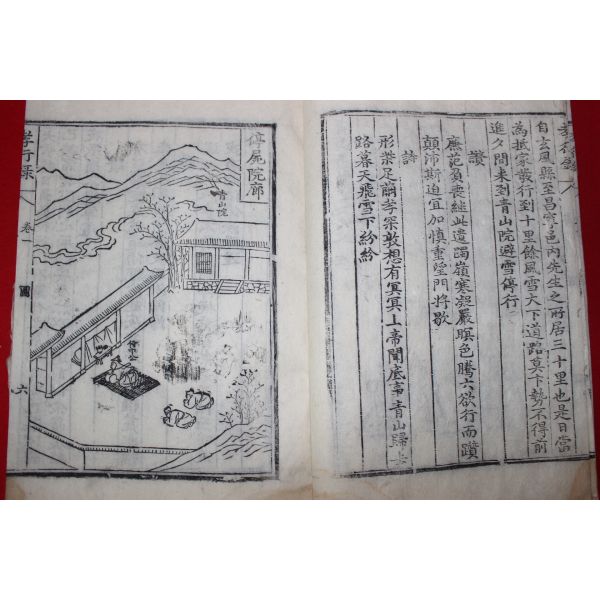 自玄風縣至昌寧邑內先生之所居三十里也是日當
為抵家發行到十里餘風雪大下道路莫卞勢不得前
進久間来到青山院避雪停行
讚
廉范負喪繼此遺躅嶺寒凝嚴暝色騰六欲行而躓
顛沛斯迫宜加慎重塋門將歇
詩
形羸足繭孝深敦想有冥冥上帝聞底事青山歸
路暮天飛雪下紛紛
停屍院廊
青山院
孝行录
卷一
圖
六